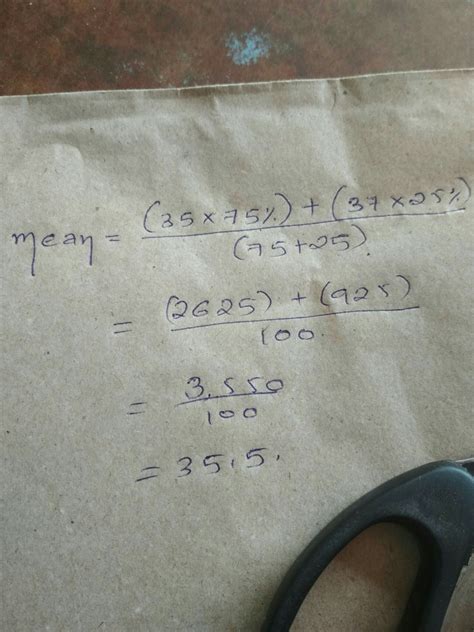 mean = (35 × 75%) + (37 × 25%) / (75+25).
= (2625) + (925) / 100.
= 3,550 / 100
= 35.5.